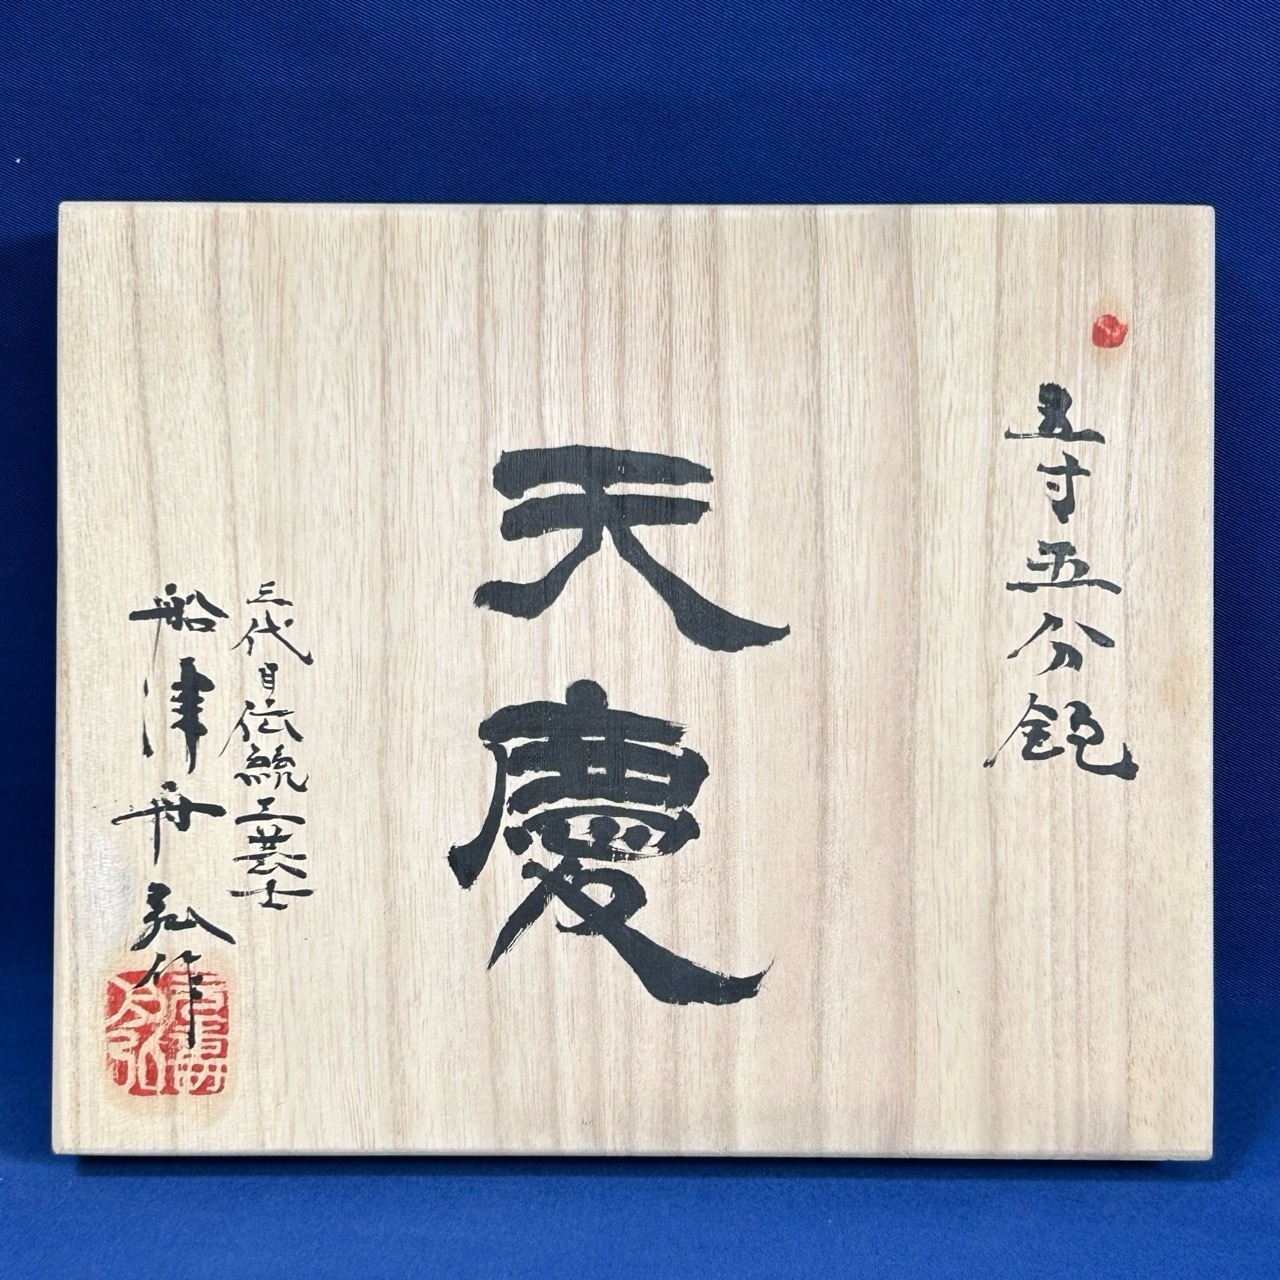 五寸五分鉋
天慶
三代目伝統工芸士
船津舟弘作